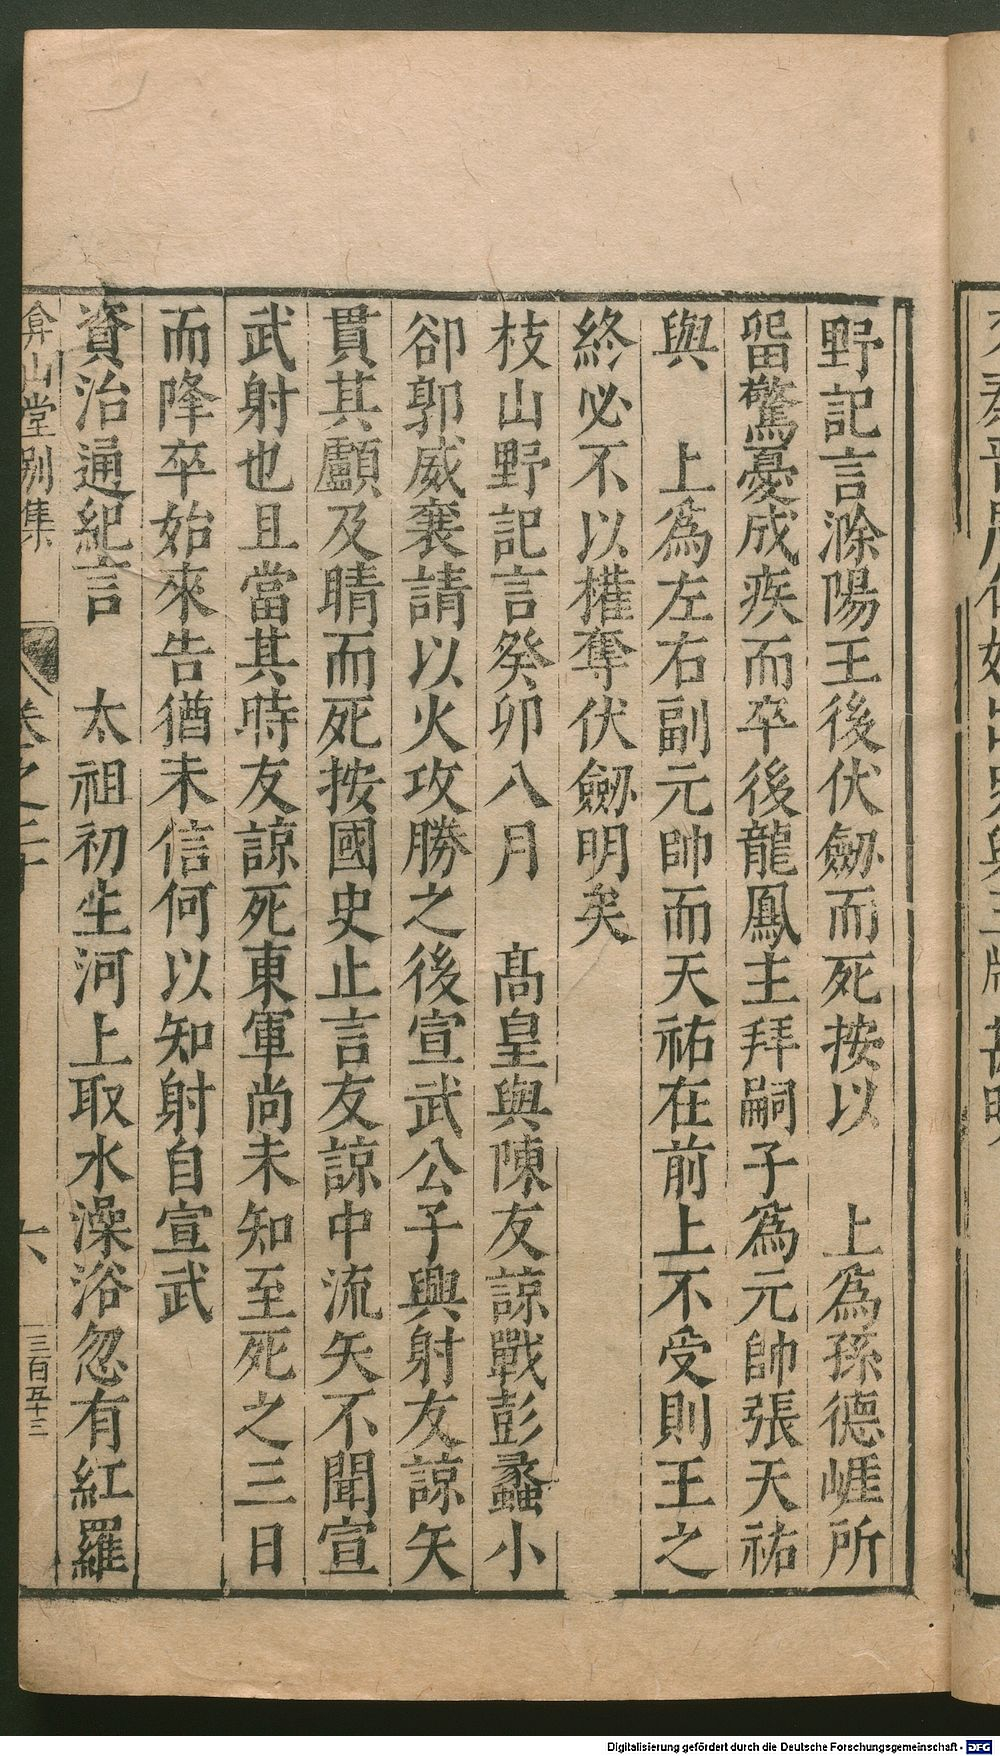 野記言滁陽王後伏劒而死按以　上爲孫德崕所
留驚憂成疾而卒後龍鳳主拜嗣子爲元帥張天祐
與　上爲左右副元帥而天祐在前上不受則王之
終必不以權奪伏劒明矣
枝山野記言癸卯八月　髙皇與陳友諒戰彭蠡小
卻郭威襄請以火攻勝之後宣武公子興射友諒矢
貫其顱及睛而死按國史止言友諒中流矢不聞宣
武射也且當其時友諒死東軍尚未知至死之三日
而降卒始來告猶未信何以知射自宣武
資治通紀言　太祖初生河上取水澡浴忽有紅羅
弇山堂別集　卷之二十　六　三百五十三
Digitalisierung gefördert durch die Deutsche Forschungsgemeinschaft - DFG